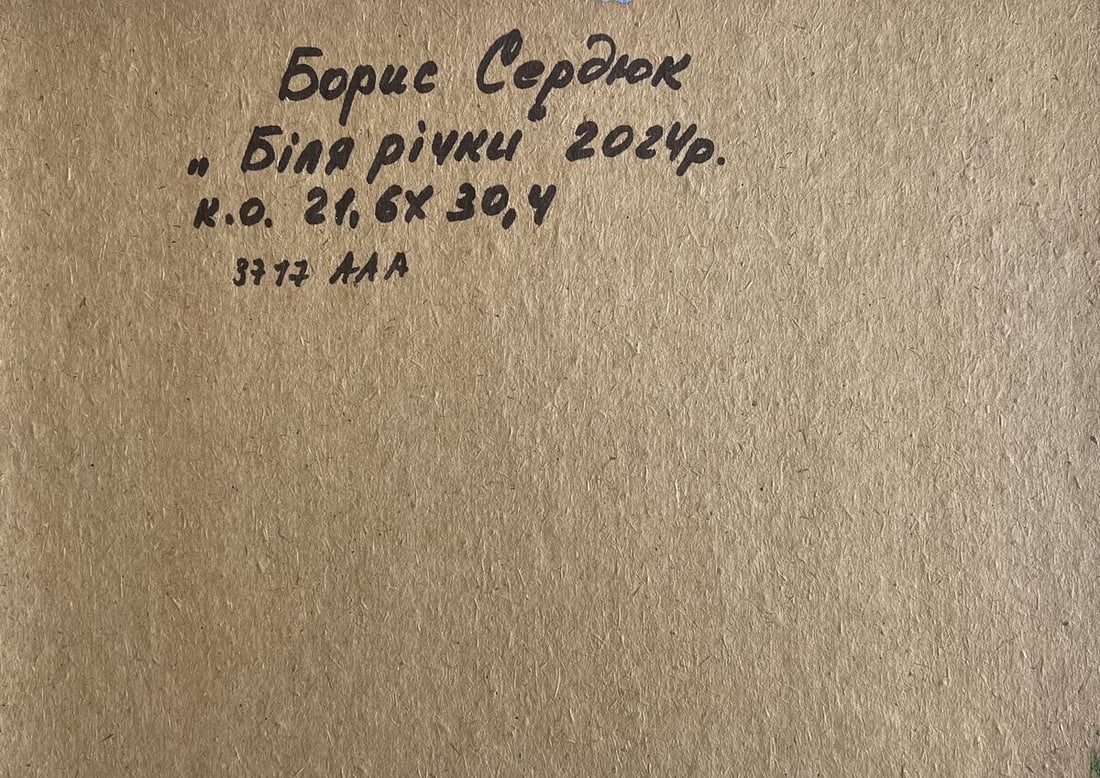 Борис Сердюк
„ Біля річки" 2024р.
к.о. 21,6х 30,4
3717 ААА